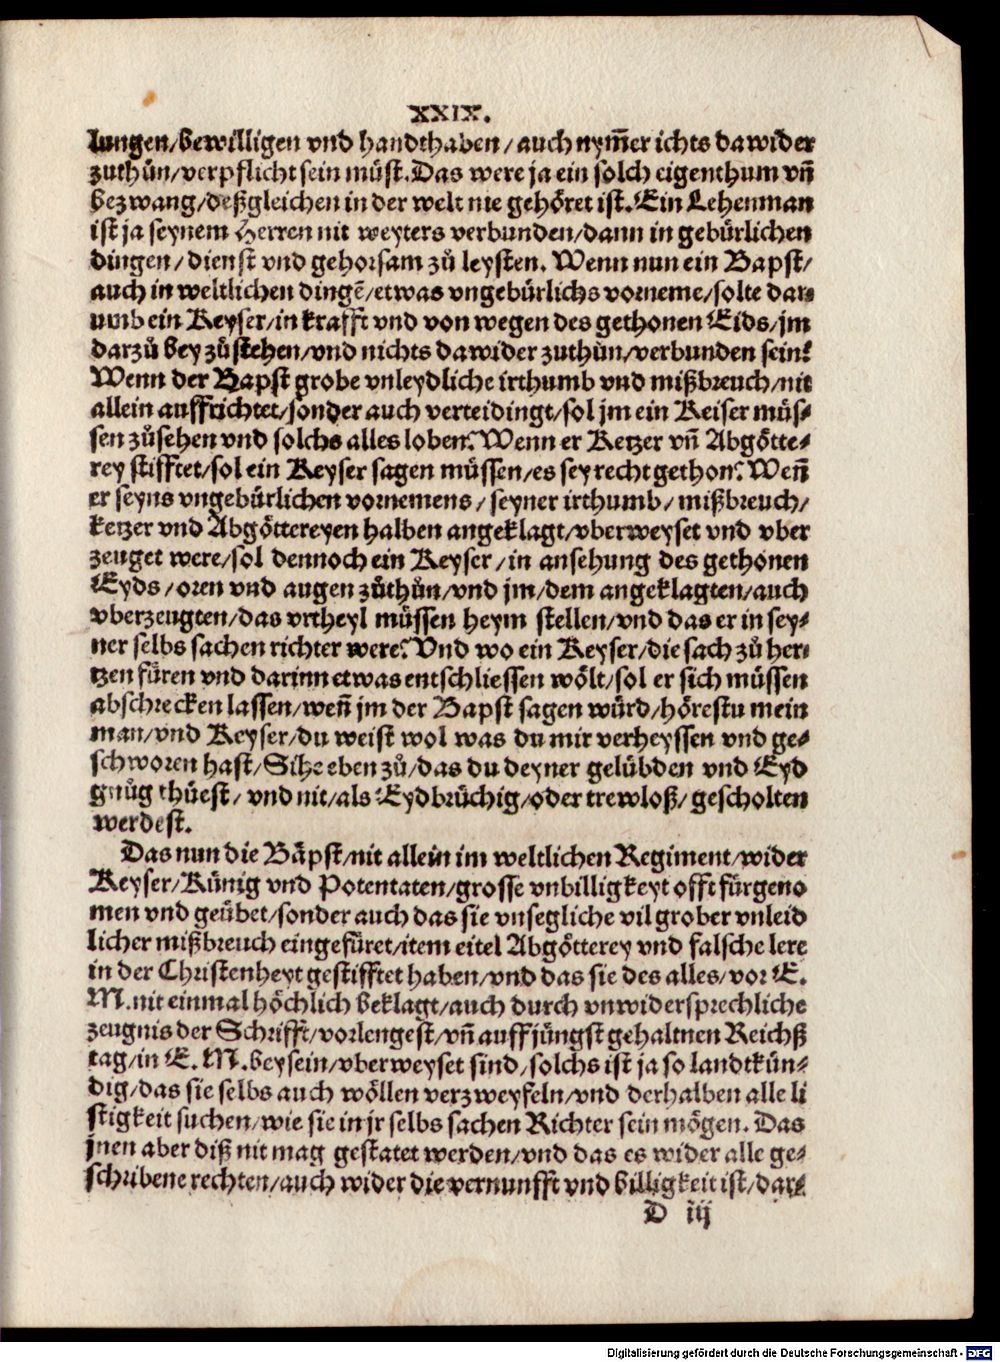 XXIX.
lungen/bewilligen vnd handthaben/auch nym̃er ichts dawider
zuthůn/verpflicht sein můst.Das were ja ein solch eigenthum vñ
bezwang/deßgleichen in der welt nie gehöret ist.Ein Lehenman
ist ja seynem Herren nit weyters verbunden/dann in gebürlichen
dingen/dienst vnd gehorsam zů leysten. Wenn nun ein Bapst/
auch in weltlichen dingẽ/etwas vngebürlichs vorneme/solte dar⸗
umb ein Keyser/in krafft vnd von wegen des gethonen Eids/jm
darzů bey zůstehen/vnd nichts dawider zuthůn/verbunden sein?
Wenn der Bapst grobe vnleydliche irthumb vnd mißbreuch/nit
allein auffrichtet/sonder auch verteidingt/sol jm ein Keiser müs⸗
sen zůsehen vnd solchs alles loben? Wenn er Ketzer vñ Abgötte⸗
rey stifftet/sol ein Keyser sagen müssen/es sey recht gethon? Weñ
er seyns vngebürlichen vornemens/seyner irthumb/mißbreuch/
ketzer vnd Abgöttereyen halben angeklagt/vberweyset vnd vber
zeuget were/sol dennoch ein Keyser/in ansehung des gethonen
Eyds/oren vnd augen zůthůn/vnd jm/dem angeklagten/auch
vberzeugten/das vrtheyl müssen heym stellen/vnd das er in sey⸗
ner selbs sachen richter were? Vnd wo ein Keyser/die sach zů her⸗
tzen füren vnd darinn etwas entschliessen wölt/sol er sich müssen
abschrecken lassen/weñ jm der Bapst sagen würd/hörestu mein
man/vnd Keyser/du weist wol was du mir verheyssen vnd ge⸗
schworen hast/Sihe eben zů/das du deyner gelübden vnd Eyd
gnůg thüest/vnd nit/als Eydbrüchig/oder trewloß/gescholten
werdest.
Das nun die Bäpst/nit allein im weltlichen Regiment/wider
Keyser/Künig vnd Potentaten/grosse vnbilligkeyt offt fürgeno
men vnd geübet/sonder auch das sie vnsegliche vil grober vnleid
licher mißbreuch eingefüret/item eitel Abgötterey vnd falsche lere
in der Christenheyt gestifftet haben/vnd das sie des alles/vor E.
M.nit einmal höchlich beklagt/auch durch vnwidersprechliche
zeugnis der Schrifft/vorlengest/vñ auff jüngst gehaltnen Reichß
tag/in E.M.beysein/vberweyset sind/solchs ist ja so landtkün⸗
dig/das sie selbs auch wöllen verzweyfeln/vnd derhalben alle li
stigkeit suchen/wie sie in jr selbs sachen Richter sein mögen. Das
jnen aber diß nit mag gestatet werden/vnd das es wider alle ge⸗
schribene rechten/auch wider die vernunfft vnd billigkeit ist/dar⸗
D iij
Digitalisierung gefördert durch die Deutsche Forschungsgemeinschaft - DFG